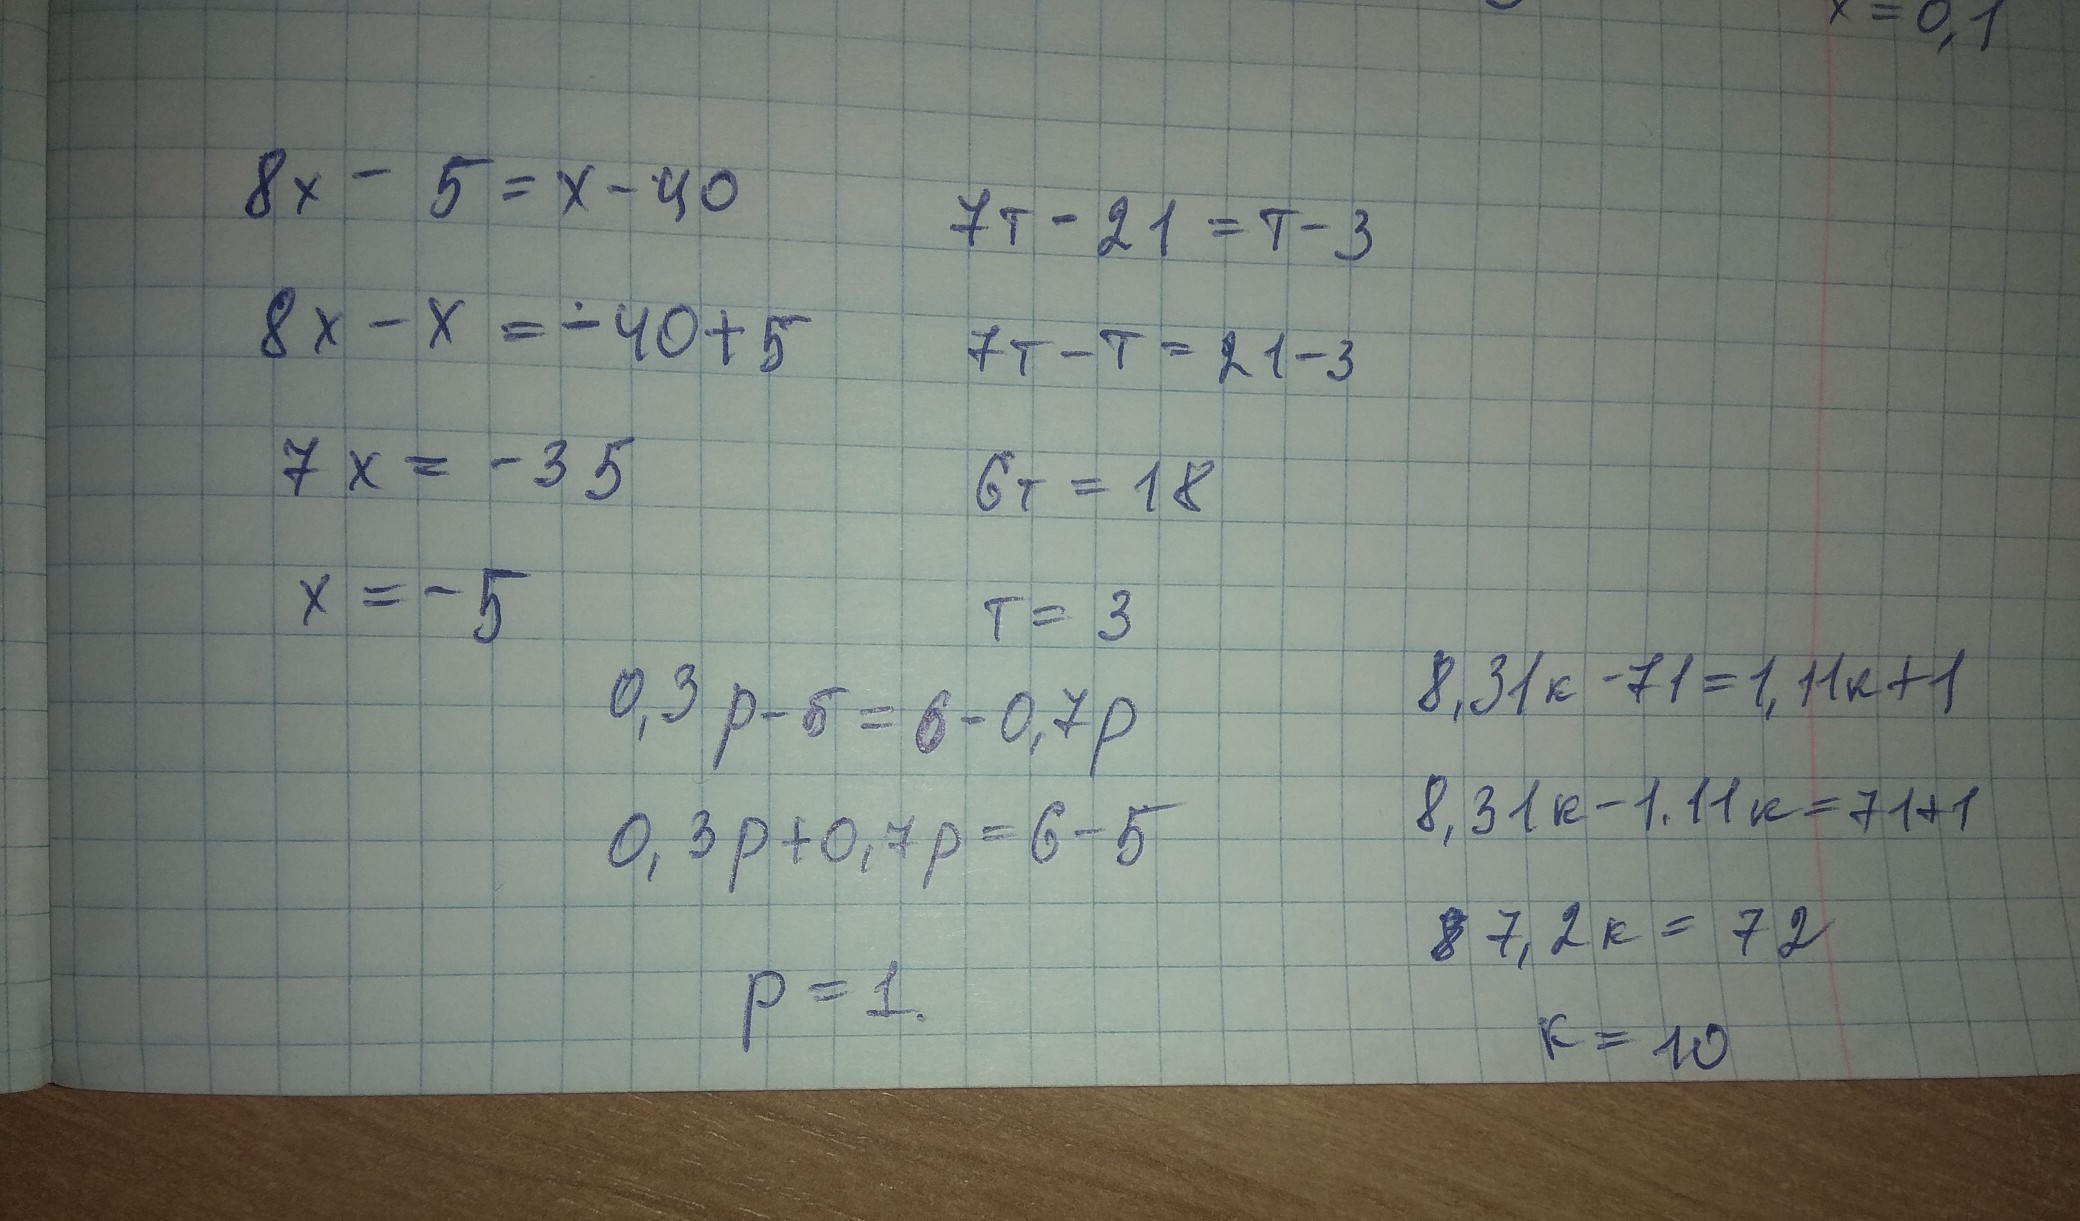 x = 0,1
8x - 5 = x - 40
8x - x = -40 + 5
7x = -35
x = -5
7т - 21 = т - 3
7т - т = 21 - 3
6т = 18
т = 3
0,3p - 5 = 6 - 0,7p
0,3p + 0,7p = 6 - 5
p = 1.
8,31к - 71 = 1,11к + 1
8,31к - 1.11к = 71 + 1
7,2к = 72
к = 10